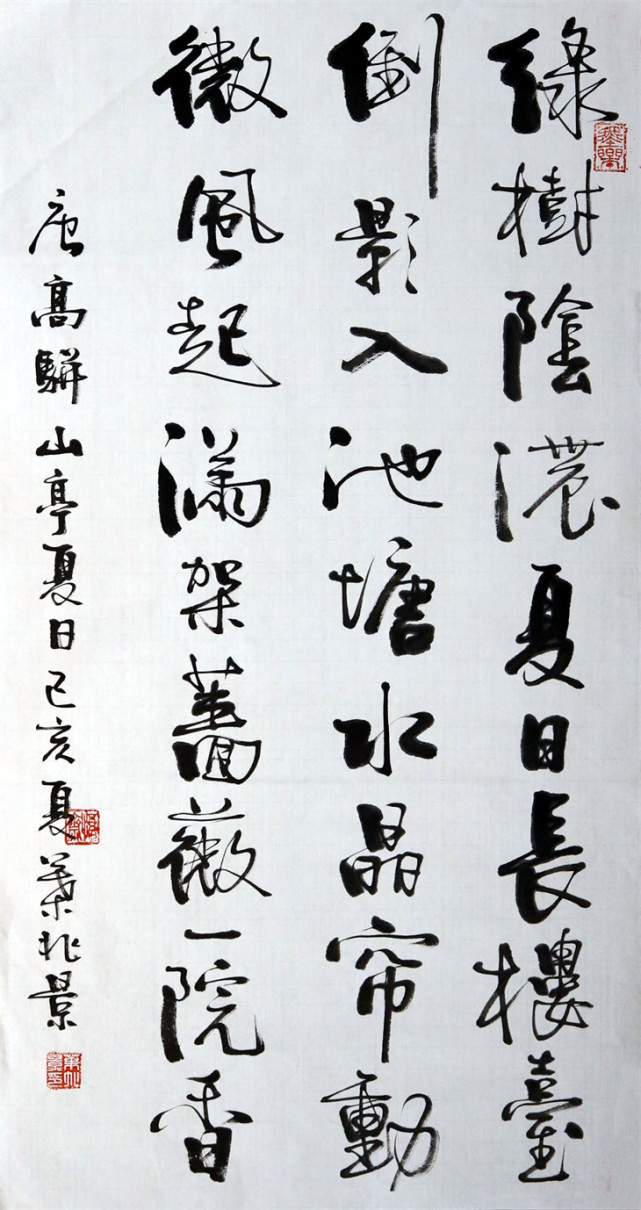 綠樹陰濃夏日長樓臺
倒影入池塘水晶帘動
微風起滿架薔薇一院香
唐高駢山亭夏日己亥夏葉兆景